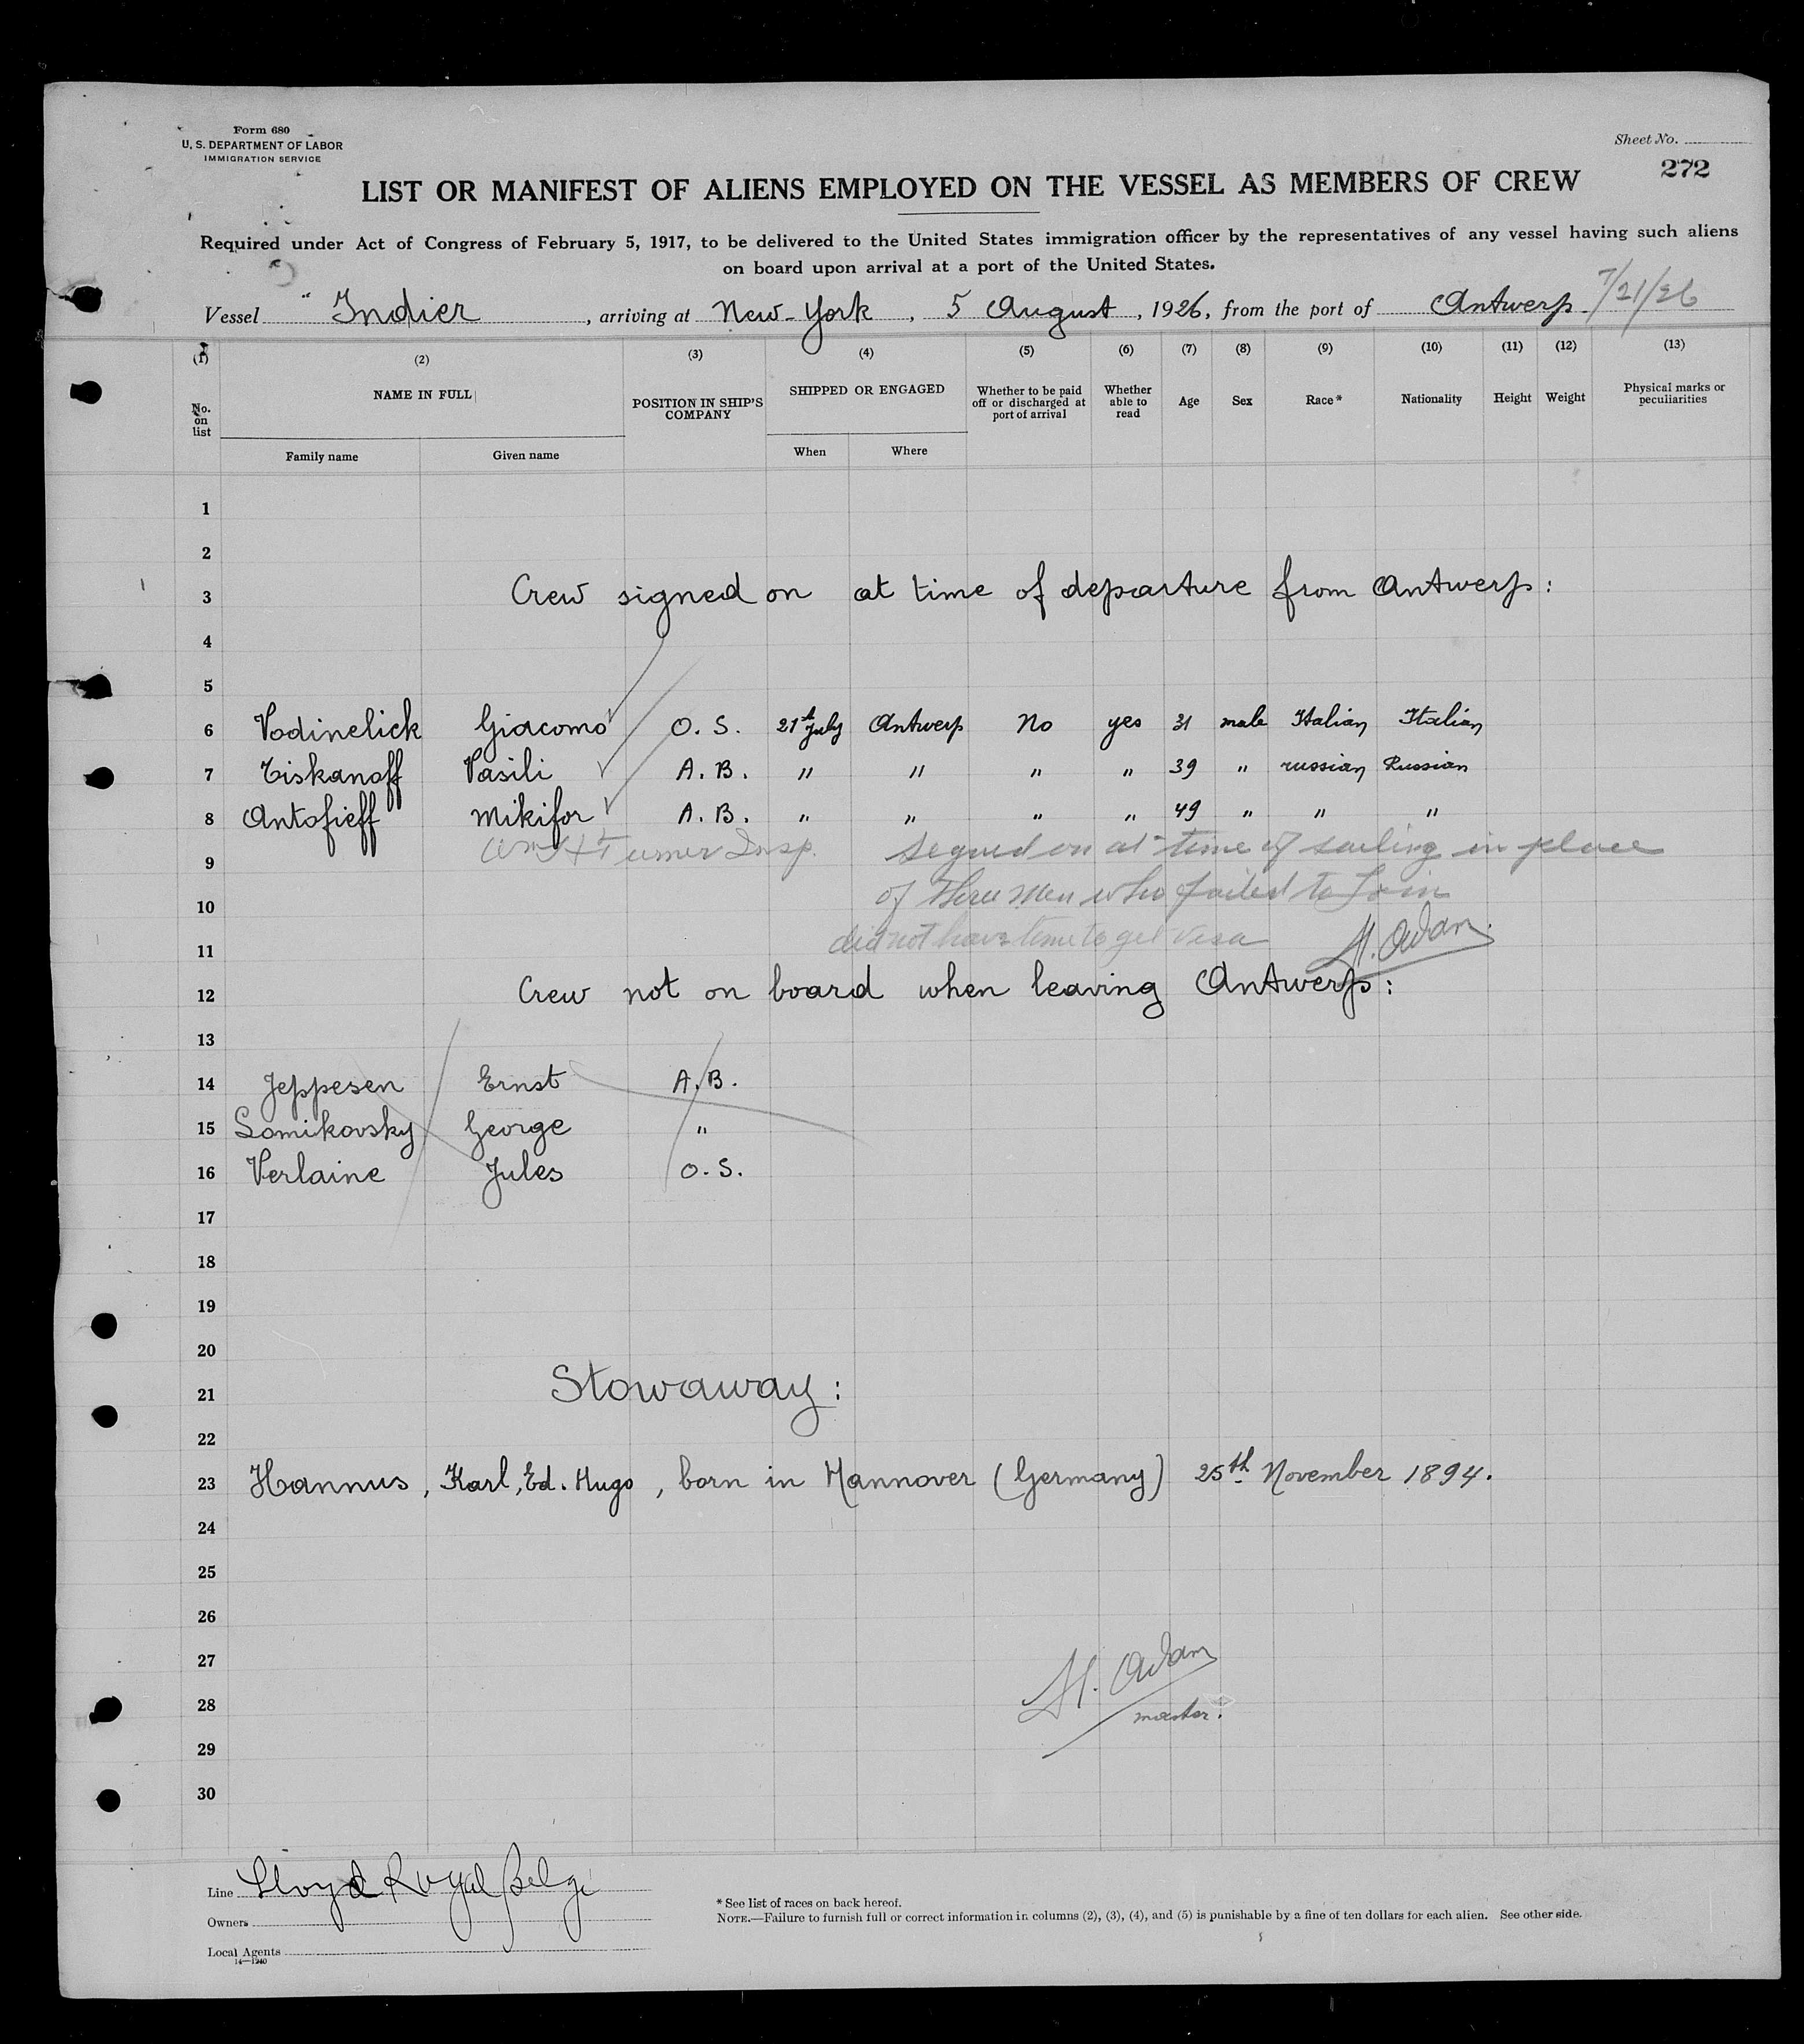 Form 680
U. S. DEPARTMENT OF LABOR
IMMIGRATION SERVICE
Sheet No.
272
LIST OR MANIFEST OF ALIENS EMPLOYED ON THE VESSEL AS MEMBERS OF CREW
Required under Act of Congress of February 5, 1917, to be delivered to the United States immigration officer by the representatives of any vessel having such aliens
on board upon arrival at a port of the United States.
Vessel " Indier , arriving at New-York , 5 August , 1926, from the port of Antwerp. 7/21/26
(1) (2) (3) (4) (5) (6) (7) (8) (9) (10) (11) (12) (13)
No. on list NAME IN FULL POSITION IN SHIP'S COMPANY SHIPPED OR ENGAGED Whether to be paid off or discharged at port of arrival Whether able to read Age Sex Race* Nationality Height Weight Physical marks or peculiarities
Family name Given name When Where
1
2
3 Crew signed on at time of departure from Antwerp:
4
5
6 Vodinelick Giacomo O. S. 21st July Antwerp No yes 31 male Italian Italian
7 Tiskanoff Vasili A. B. " " " " 39 " russian Russian
8 Antofieff Mikifor A. B. " " " " 49 " " "
9 Turner Insp. Signed on at time of sailing in place
10 of three men who failed to join
11 did not have time to get visa H. Adam.
12 Crew not on board when leaving Antwerp:
13
14 Jeppesen Ernst A. B.
15 Somikovsky George "
16 Verlaine Jules O. S.
17
18
19
20
21 Stowaway:
22
23 Hannus, Karl, Ed. Hugo, born in Hannover (Germany) 25th November 1894.
24
25
26
27 H. Adam
28 master.
29
30
Line Lloyd Royal Belge
Owners
Local Agents
14—1240
* See list of races on back hereof.
NOTE.—Failure to furnish full or correct information in columns (2), (3), (4), and (5) is punishable by a fine of ten dollars for each alien. See other side.